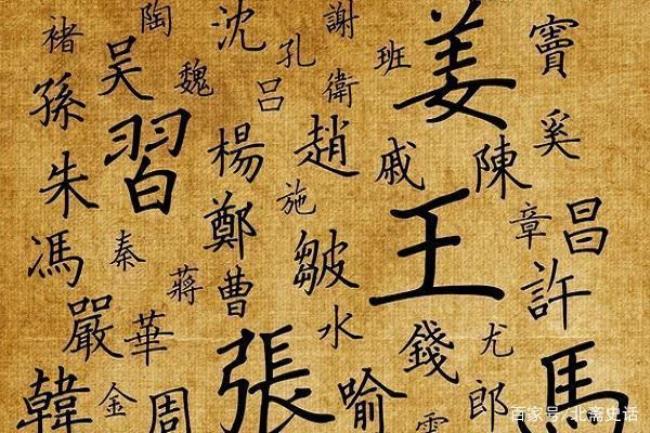 褚 陶 沈 謝 姜 竇
吳 魏 孔 班
孫 習 呂 衛 奚
朱 楊 趙 戚 陳
鄭 施 王 章 昌
馮 秦 蔣 曹 皺 許
嚴 華 水 錢 尤
韓 金 周 張 喻 郎 馬
百家号/北斋史话